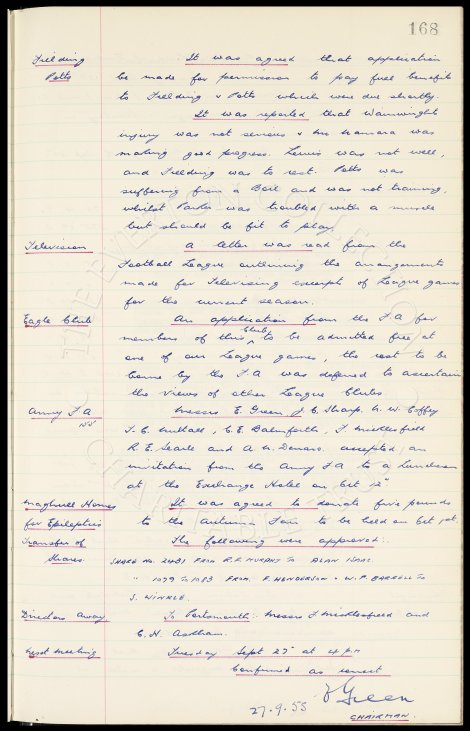 168
Fielding It was agreed that application
Potts be made for permission to pay full benefits
to Fielding & Potts which were due shortly.
It was reported that Wainwright's
injury was not serious & McNamara was
making good progress. Lewis was not well,
and Fielding was to rest. Potts was
suffering from a Boil and was not training,
whilst Parker was troubled with a muscle
but should be fit to play.
Television A letter was read from the
Football League outlining the arrangements
made for Televising excerpts of League games
for the current season.
Eagle Club An application from the F.A for
members of this Club to be admitted free at
one of our League games, the cost to be
borne by the F.A was deferred to ascertain
the views of other League Clubs.
Army F.A Messrs E. Green, J. C. Sharp, N. W. Coffey
T. C. Nuttall, C. E. Balmforth, F. Micklesfield
R. E. Searle and A. W. Denaro accepted an
invitation from the Army F.A to a Luncheon
at the Exchange Hotel on Oct 12th
Maghull Homes It was agreed to donate five pounds
for Epileptics to the Autumn Fair to be held on Oct 1st.
Transfer of The following were approved:
Shares. SHARE NO. 2431 FROM R. F. MURPHY TO ALAN ISAAC
" 1079 TO 1083 FROM F. HENDERSON & W. P. TO
S. WINKLE.
Directors away To Portsmouth: Messrs F. Micklesfield and
C. H. Askham.
Next meeting Tuesday Sept 27th at 4 pm
Confirmed as correct
27.9.55 Green
CHAIRMAN.